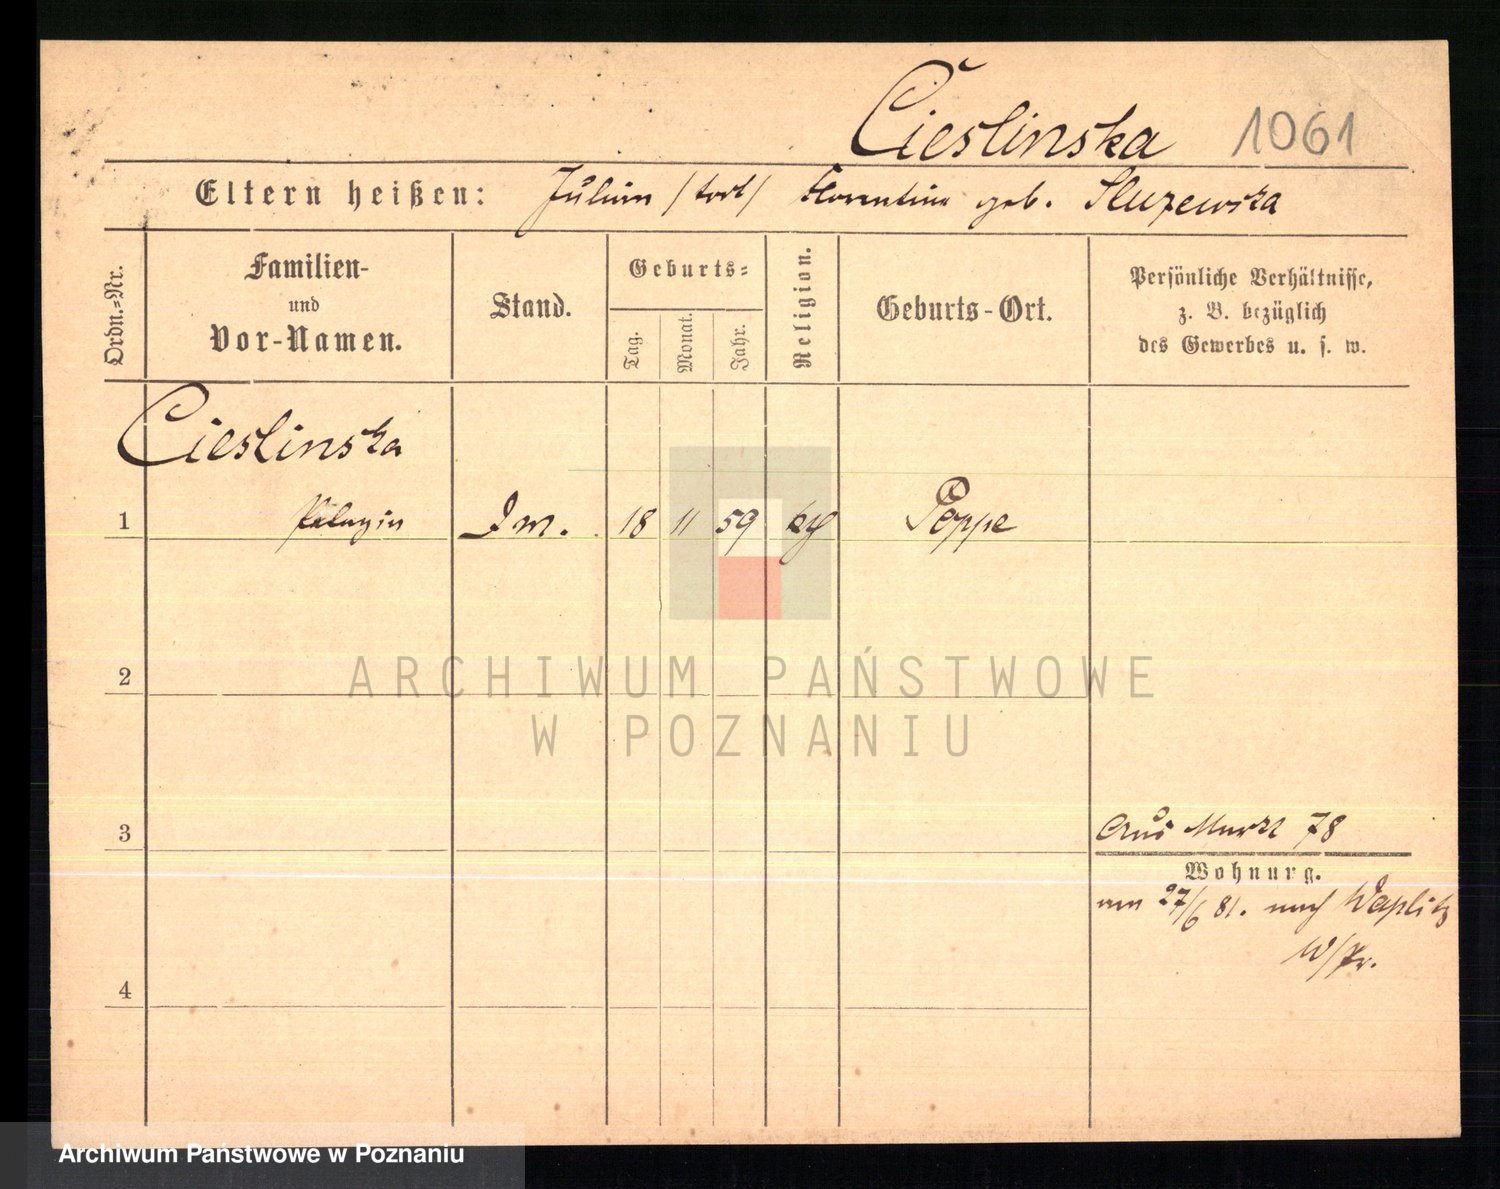 Cieslinska 1061
Eltern heißen: Julian /tod/ Florentine geb. Sluzewska
Ordn.=Nr.
Familien-
und
Vor-Namen.
Stand.
Geburts=
Tag.
Monat.
Jahr.
Religion.
Geburts-Ort.
Persönliche Verhältnisse,
z. B. bezüglich
des Gewerbes u. s. w.
Cieslinska
1 Pelagia 18 11 59 Peppe
2
ARCHIWUM PAŃSTWOWE
W POZNANIU
3
Aus Markt 78
Wohnung.
am 27/6 81. nach Waplitz
W/Pr.
4
Archiwum Państwowe w Poznaniu